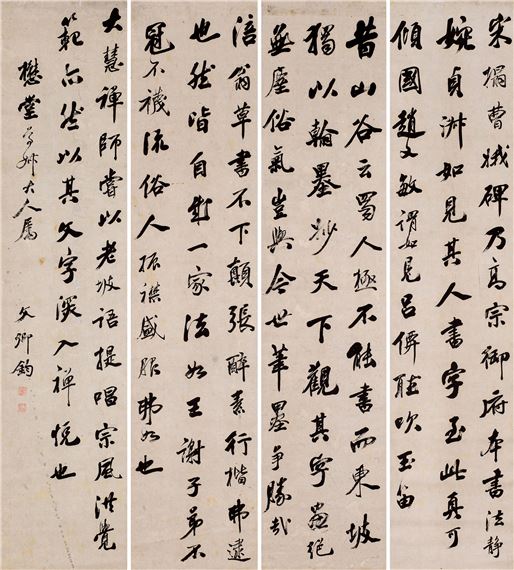 宋搨曹娥碑乃高宗御府本書法靜
婉貞淑如見其人書字至此真可
傾國趙文敏謂如見呂僊聽吹玉笛
昔山谷云蜀人極不能書而東坡
獨以翰墨妙天下觀其字畫絕
無塵俗氣豈與今世筆墨爭勝哉
涪翁草書不下顛張醉素行楷弗逮
也然皆自成一家法如王謝子弟不
冠不襪流俗人振襟盛服弗如也
大慧禪師嘗以老坡語提唱宗風洪覺
範亦然以其文字深入禪悅也
懋堂 大人屬 文卿鈞